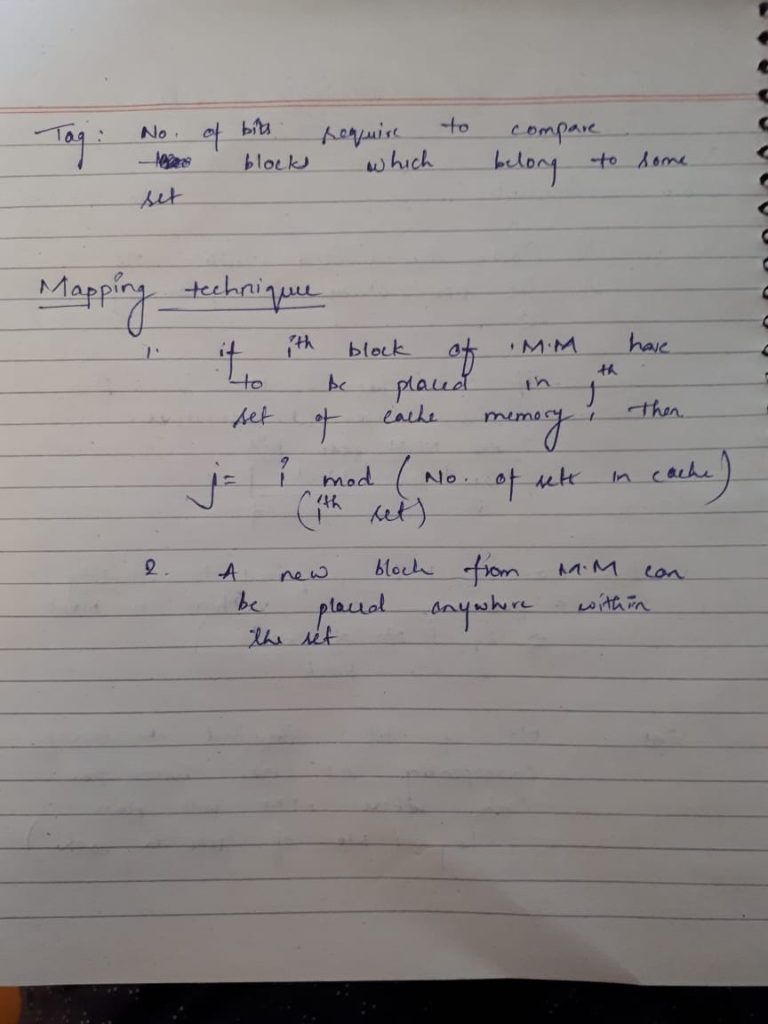 Tag: No. of bits require to compare
blocks which belong to some
set
Mapping technique
1. if ith block of M.M have
to be placed in jth
set of cache memory, then
j= i mod (No. of sets in cache)
(ith set)
2. A new block from M.M can
be placed anywhere within
the set